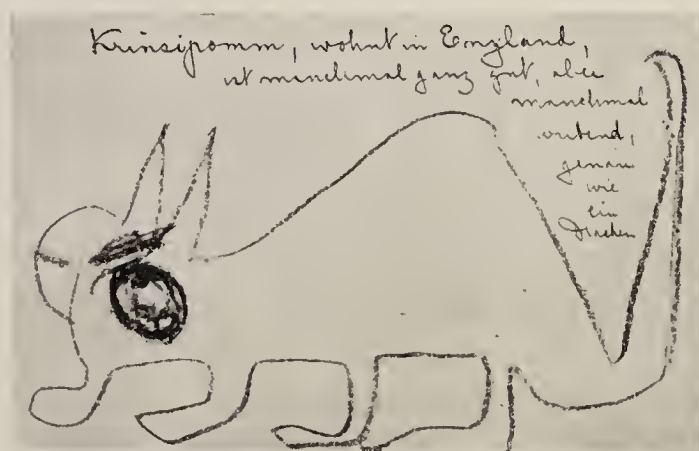 Krinsipomm, wohnt in England,
ist manchmal ganz gut, aber
manchmal
wütend,
genau
wie
ein
Drachen